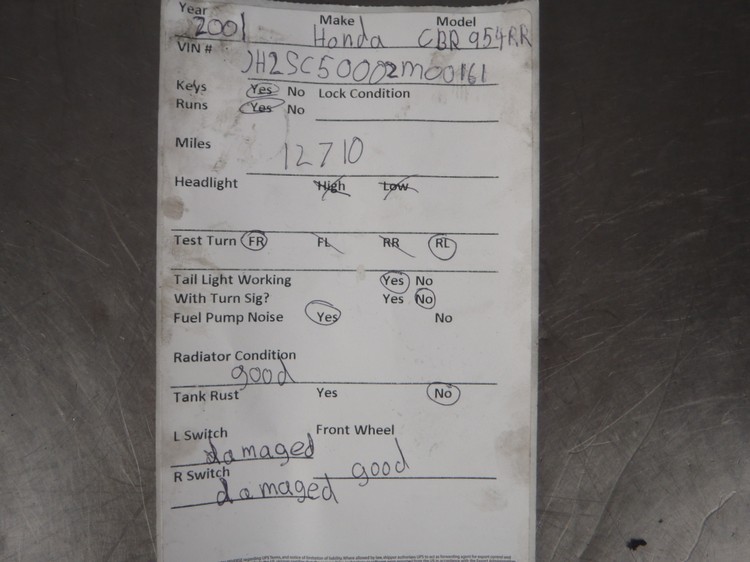 Year 2001 Make Honda Model CBR 954RR
VIN # JH2SC50002M00161
Keys Yes No Lock Condition
Runs Yes No
Miles 12710
Headlight High Low
Test Turn FR FL RR RL
Tail Light Working Yes No
With Turn Sig? Yes No
Fuel Pump Noise Yes No
Radiator Condition
good
Tank Rust Yes No
L Switch damaged Front Wheel
R Switch damaged good